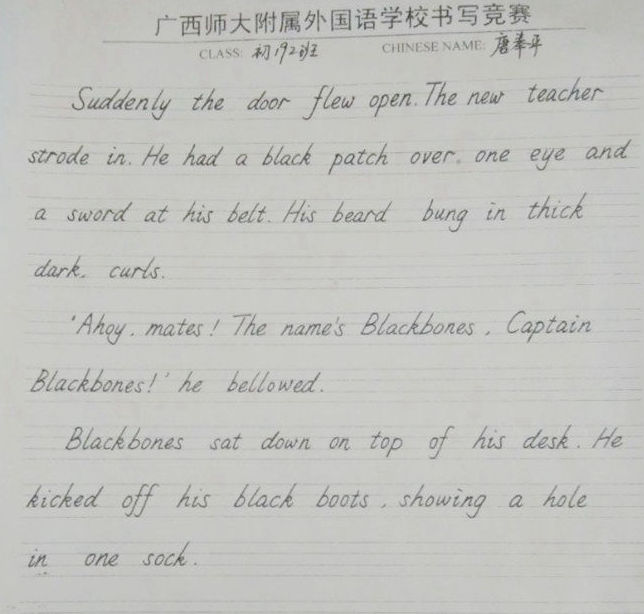 广西师大附属外国语学校书写竞赛
CLASS: 初192班 CHINESE NAME: 唐奉平
Suddenly the door flew open. The new teacher
strode in. He had a black patch over. one eye and
a sword at his belt. His beard bung in thick
dark. curls.
'Ahoy, mates! The name's Blackbones, Captain
Blackbones!' he bellowed.
Blackbones sat down on top of his desk. He
kicked off his black boots, showing a hole
in one sock.